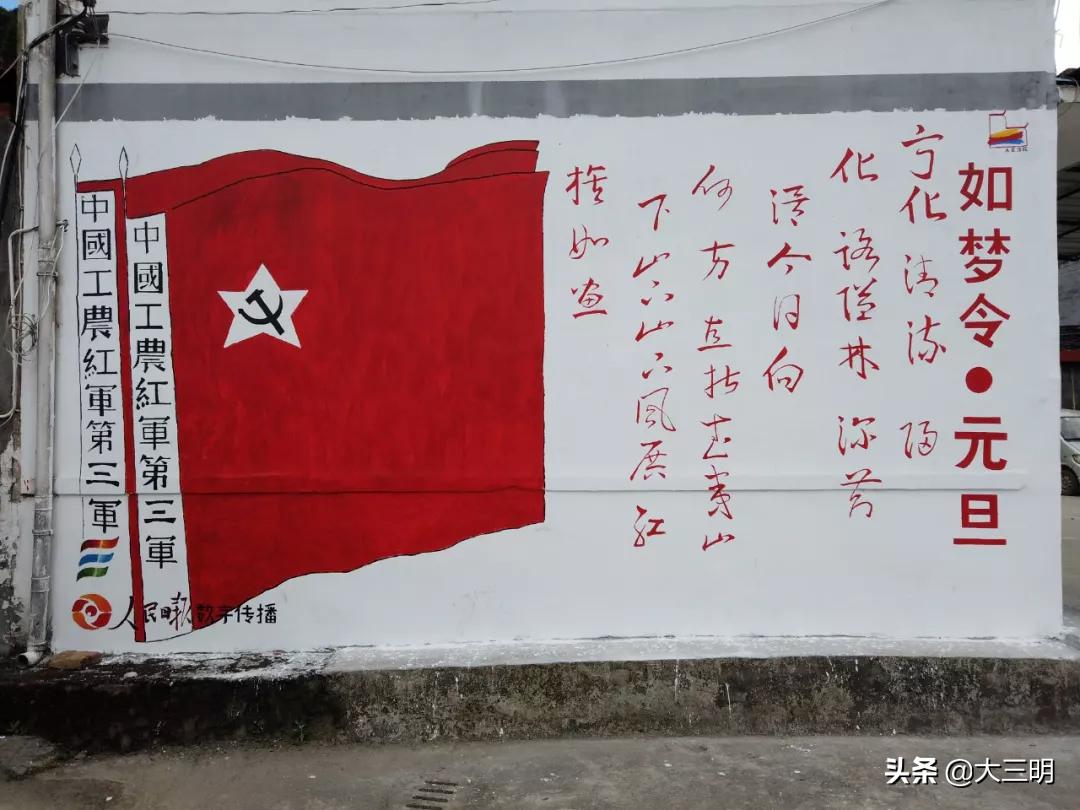 如梦令•元旦
宁化清流 归
化路隘林深苔
滑今日向
何方直指武夷山
下山下山下风展红
旗如画
中國工農紅軍第三軍
中國工農紅軍第三軍
人民日报数字传播
头条 @大三明